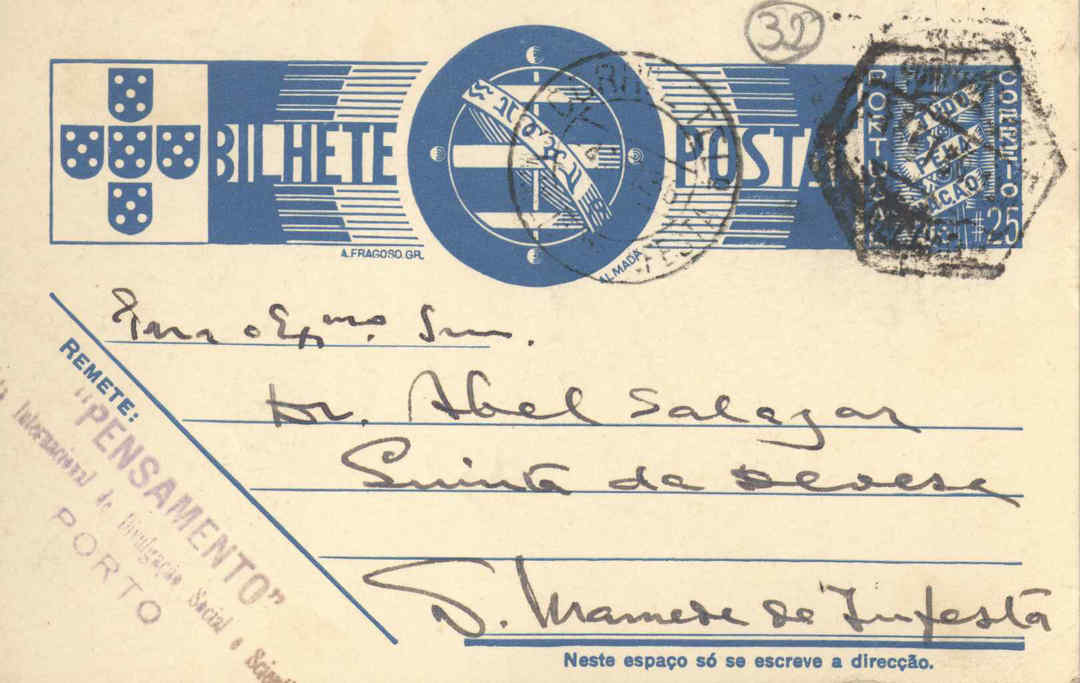 32
BILHETE POSTAL
PORTUGAL CORREIO
TUDO PELA NAÇÃO
$25
A. FRAGOSO. GR.
ALMADA
REMETE:
"PENSAMENTO"
Internacional de Divulgação Social e
PORTO
Exmo. Snr.
Dr. Abel Salazar
Quinta da Devesa
S. Mamede de Infesta
Neste espaço só se escreve a direcção.